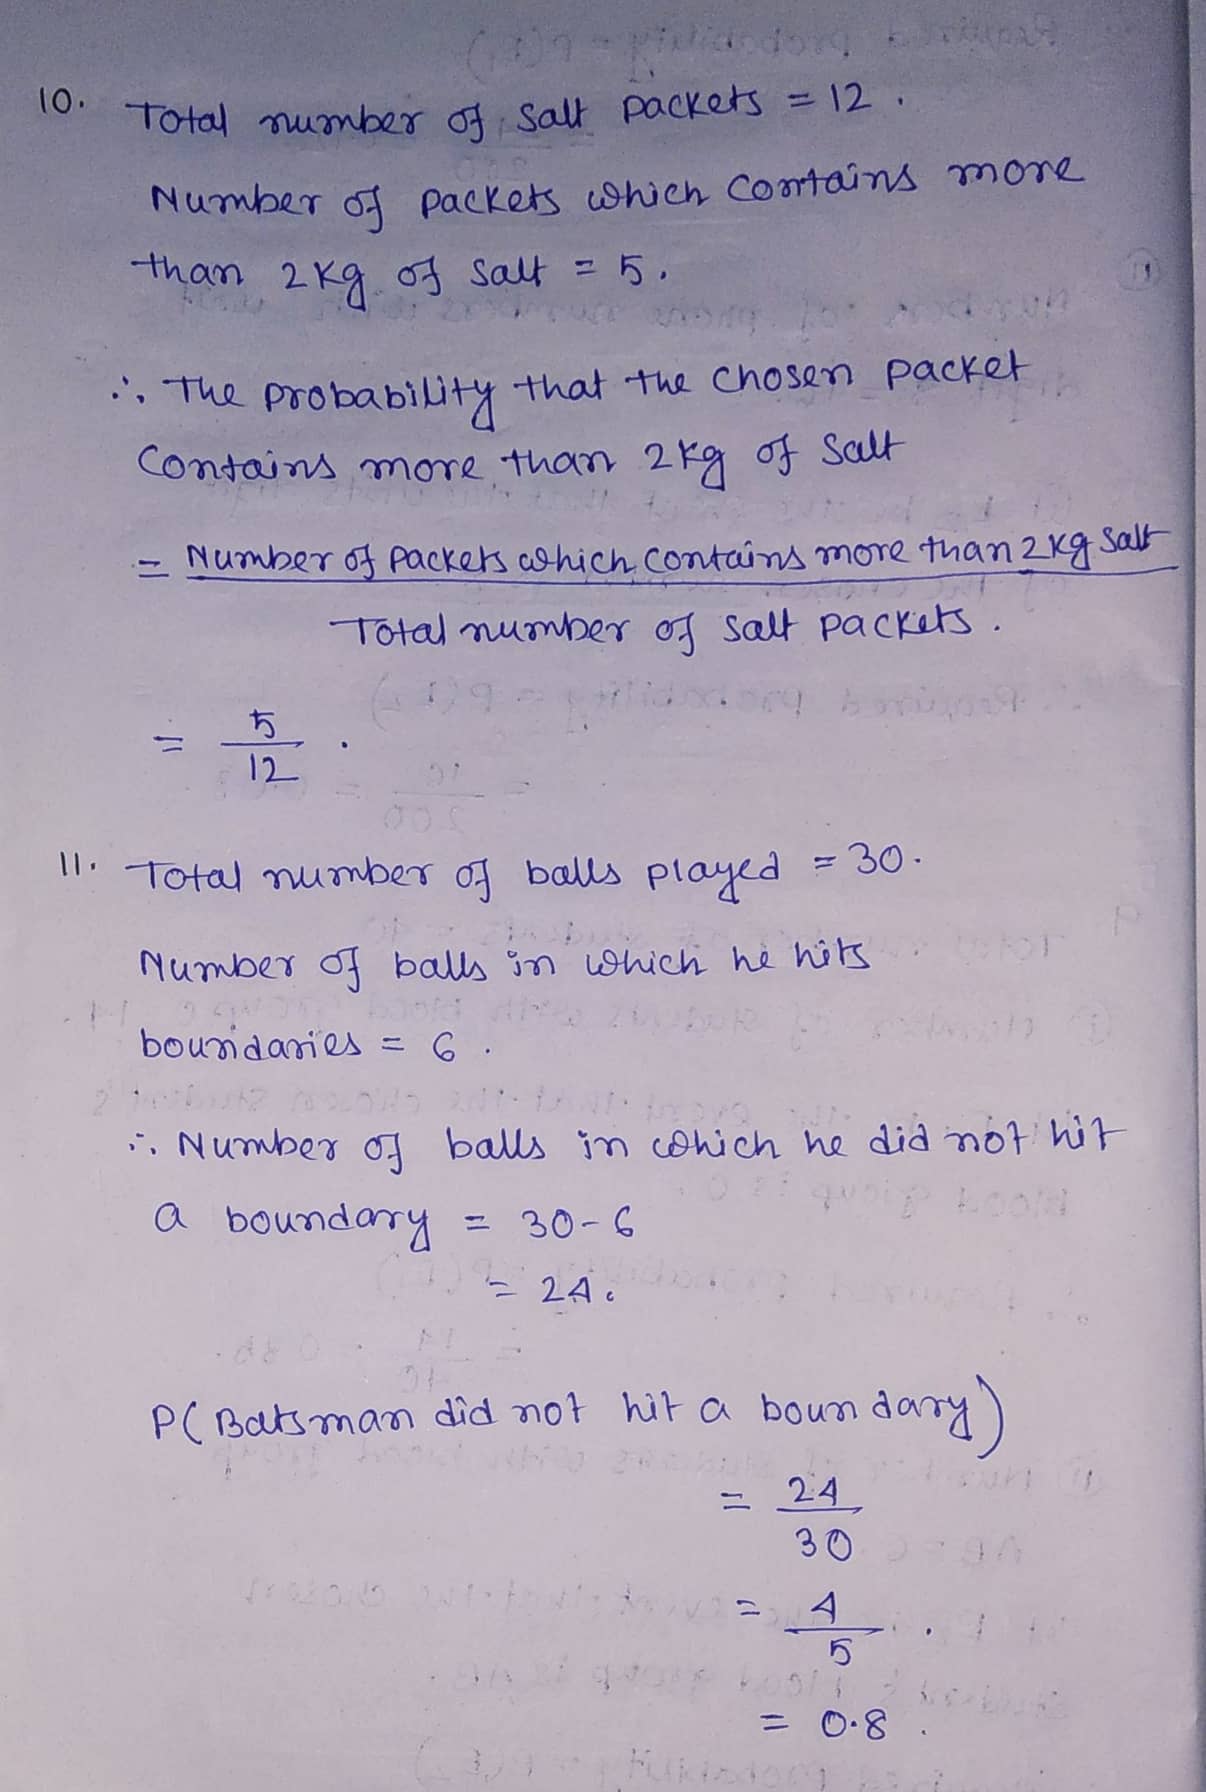 10. Total number of salt packets = 12.
Number of packets which contains more
than 2kg of salt = 5.
∴ The probability that the chosen packet
contains more than 2kg of salt
= Number of packets which contains more than 2kg salt
Total number of salt packets.
= 5
12 .
11. Total number of balls played = 30.
Number of balls in which he hits
boundaries = 6 .
∴ Number of balls in which he did not hit
a boundary = 30-6
= 24.
P(Batsman did not hit a boundary)
= 24
30
= 4
5 .
= 0.8 .